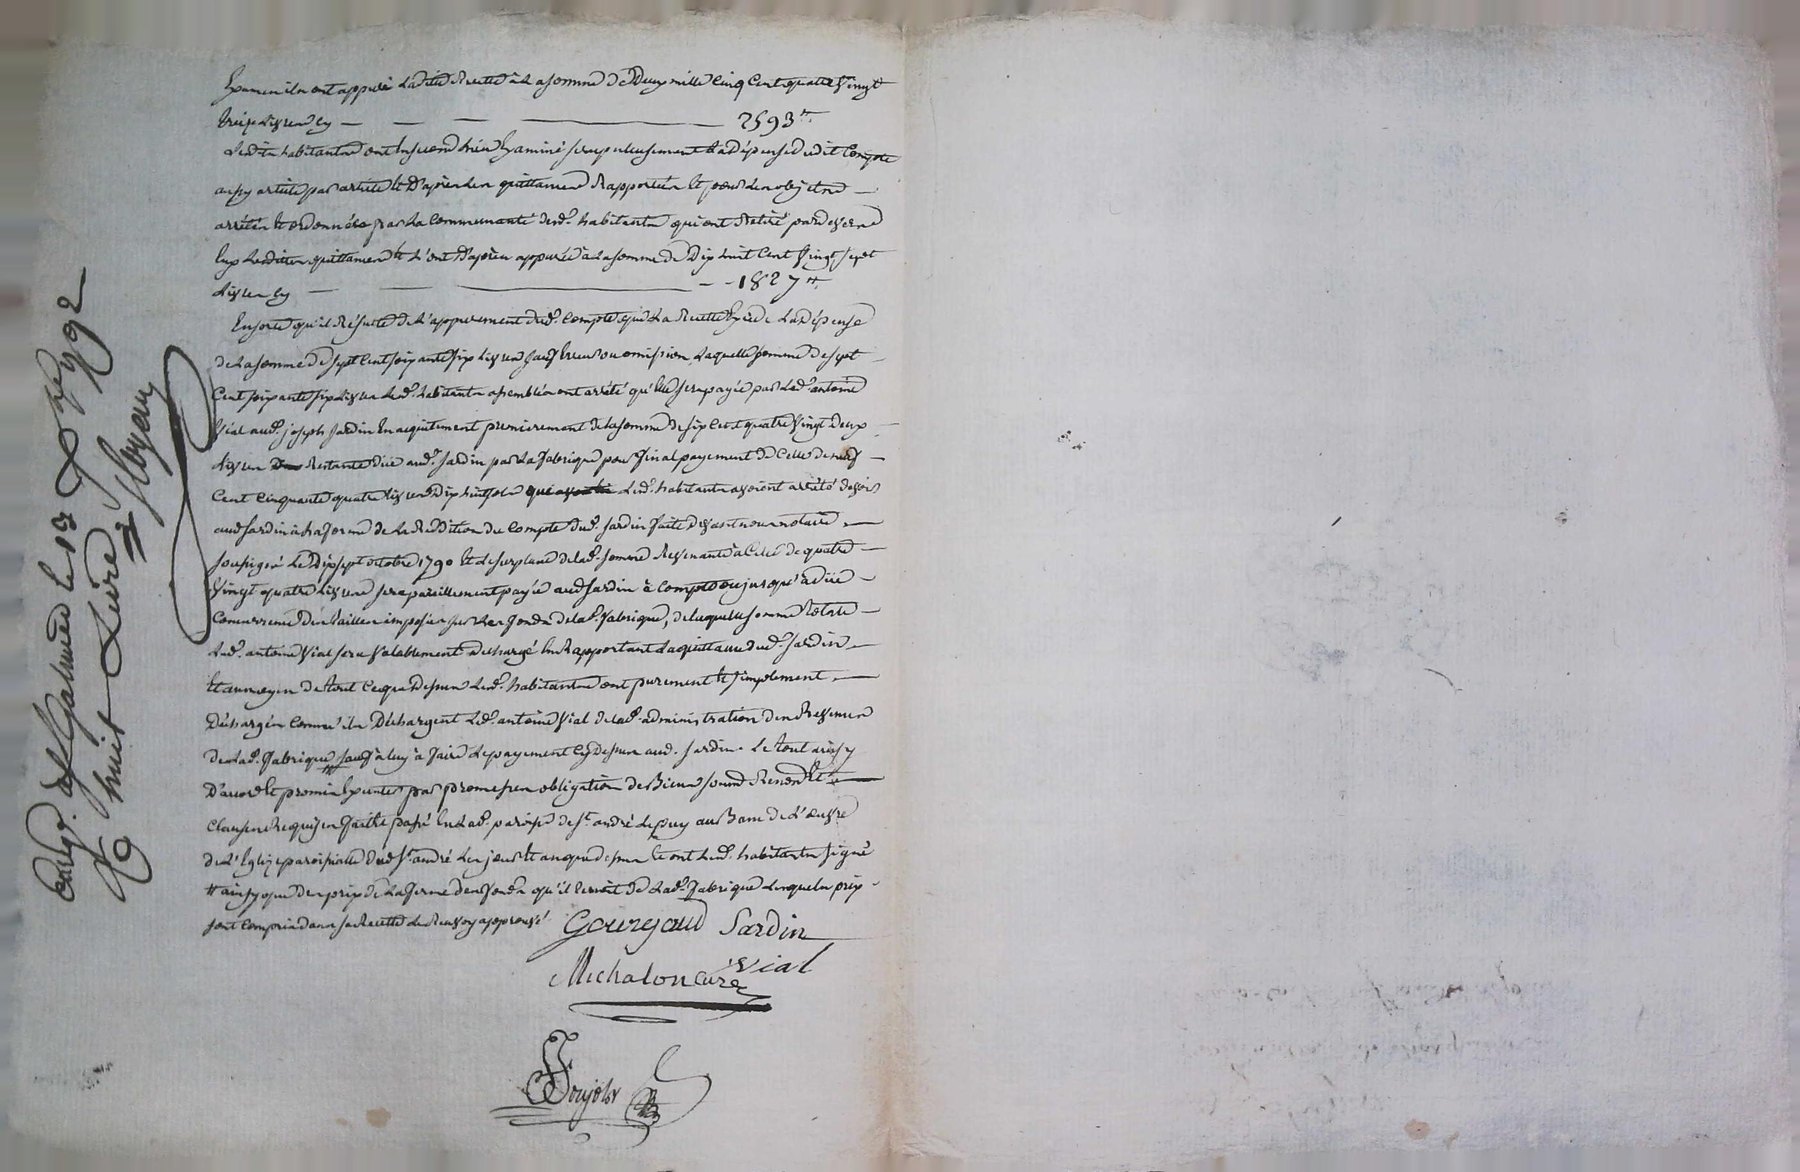 Examen ils ont appuré ladite Recette à la somme de Deux mille cinq cent quatre vingt
treize livres cy — 2593 ₶
Lesdits habitants ont ensuitte bien Examiné scrupuleusement la dépense dudit Compte
aussy article par article et d'après les quittances Rapportées et pour les objets
arrêtés et ordonnés par la Communauté desd. habitants qui ont Retiré pardevers
Eux lesdittes quittances et l'ont d'après appurée à la somme de Dix huit Cent Vingt sept
livres cy — 1827 ₶
En sorte qu'il Résulte de l'appurement dud. Compte que la Recette Excede la dépense
de la somme de sept Cent soixante six livres sauf Erreur ou omission laquelle somme de sept
Cent soixante six livres lesd. habitants assemblés ont arrêté qu'elle sera payée par led. antoine
Vial aud. joseph Jardin En acquittement premierement de la somme de six Cent quatre Vingt Deux
livres Restante düe aud. Jardin par la fabrique pour final payement de Celle de neuf
Cent Cinquante quatre livres Dix huit sols que lesd. habitants avoient arrêté devoir
aud Jardin à la forme de la Reddition du Compte dud. Jardin faite devant nous notaire
soussigné le Dix sept octobre 1790 et le surplus de lad. somme Revenante à Celle de quatre
Vingt quatre livres sera pareillement payée aud Jardin à Compte ou jusqu'à düe
Concurrence des tailles imposées sur les fonds de lad. fabrique, de laquelle somme totale
led. antoine Vial sera Valablement déchargé En Rapportant la quittance dud. Jardin
Et au moyen de tout Ce que dessus lesd. habitants ont purement et simplement
Déchargés Comme ils Déchargent led. antoine Vial de lad. administration des Revenus
de lad. fabrique sauf à luy à faire le payement Cy dessus aud. Jardin. Le tout ainsy
D'accord et promis Exécuter par promesses obligation de Biens soumis Renon et
Clauses Requises fait et passé En lad. paroisse de St. andré le puy au Banc de l'œuvre
de l'Eglize paroissiale dud St. andré les jour et an que dessus et ont lesd. habitants signé
# ainsy que des prix de la ferme des fonds qu'il tenoit de lad. fabrique lesquels prix
sont Compris dans sa Recette le Renvoy approuvé
Gourgaud Jardin
Vial
Michalon Curé
Poujols
Enreg. à St Galmier le 13 1792
huit Livres